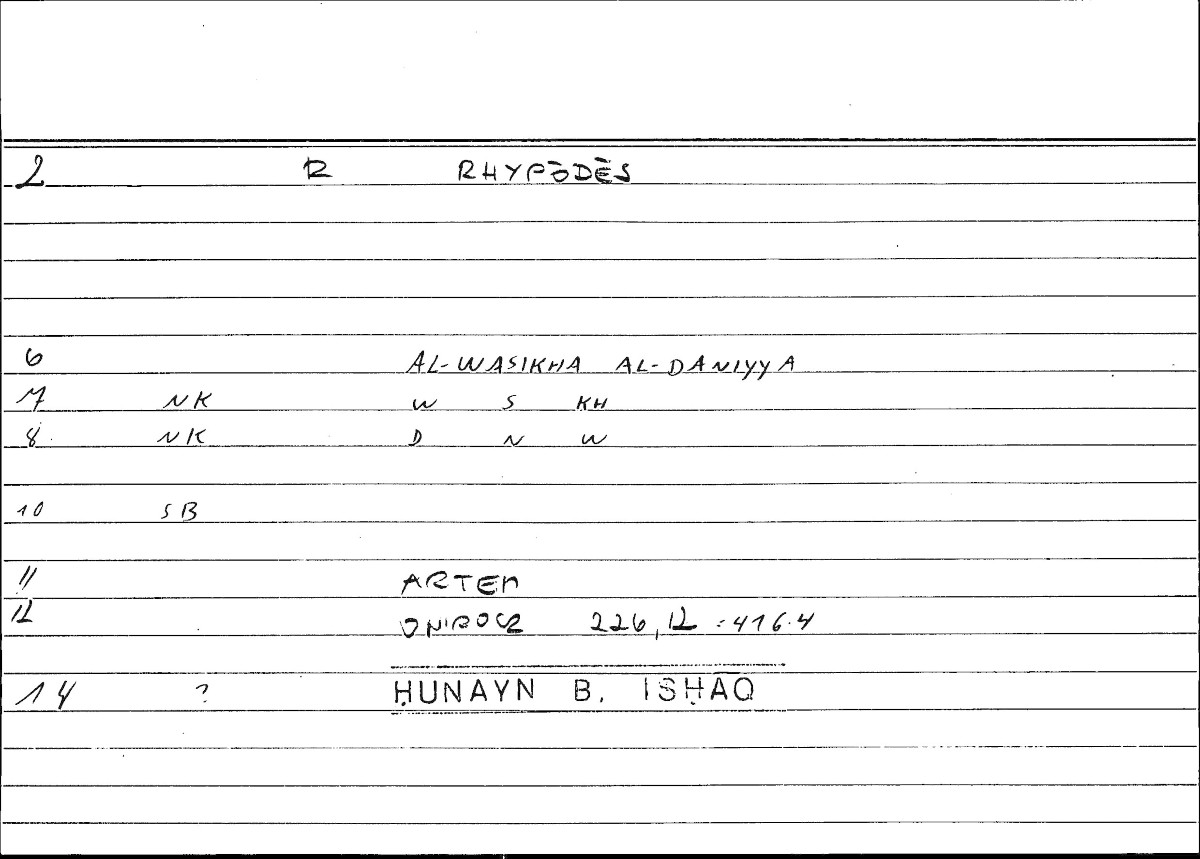 2 R RHYPŌDĒS
6 AL-WASIKHA AL-DANIYYA
7 NK W S KH
8 NK D N W
10 SB
11 ARTEM
12 ONIROCR 226,12 = 416.4
14 ? ḤUNAYN B. ISḤAQ